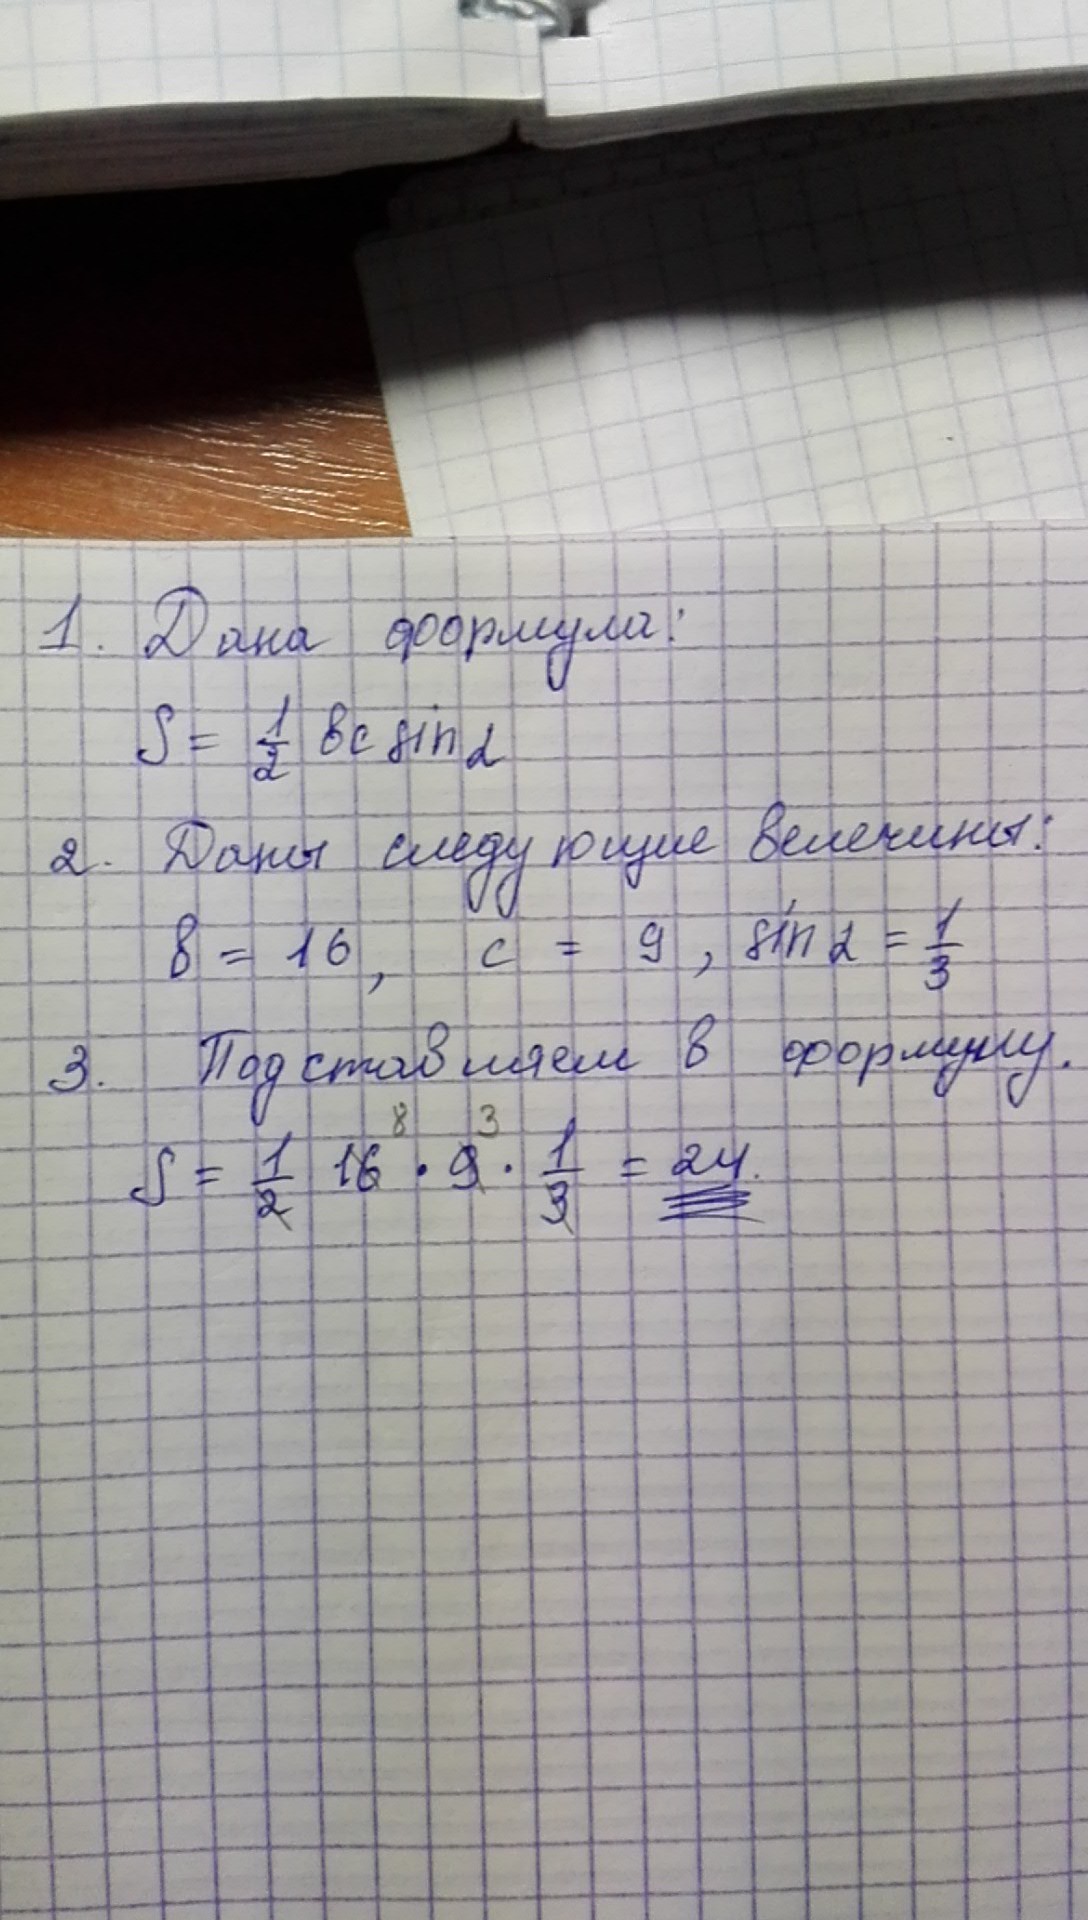 1. Дана формула:
S = 1/2 bc sin α
2. Даны следующие велечины:
b = 16, c = 9, sin α = 1/3
3. Подставляем в формулу.
8 3
S = 1/2 16 · 9 · 1/3 = 24.